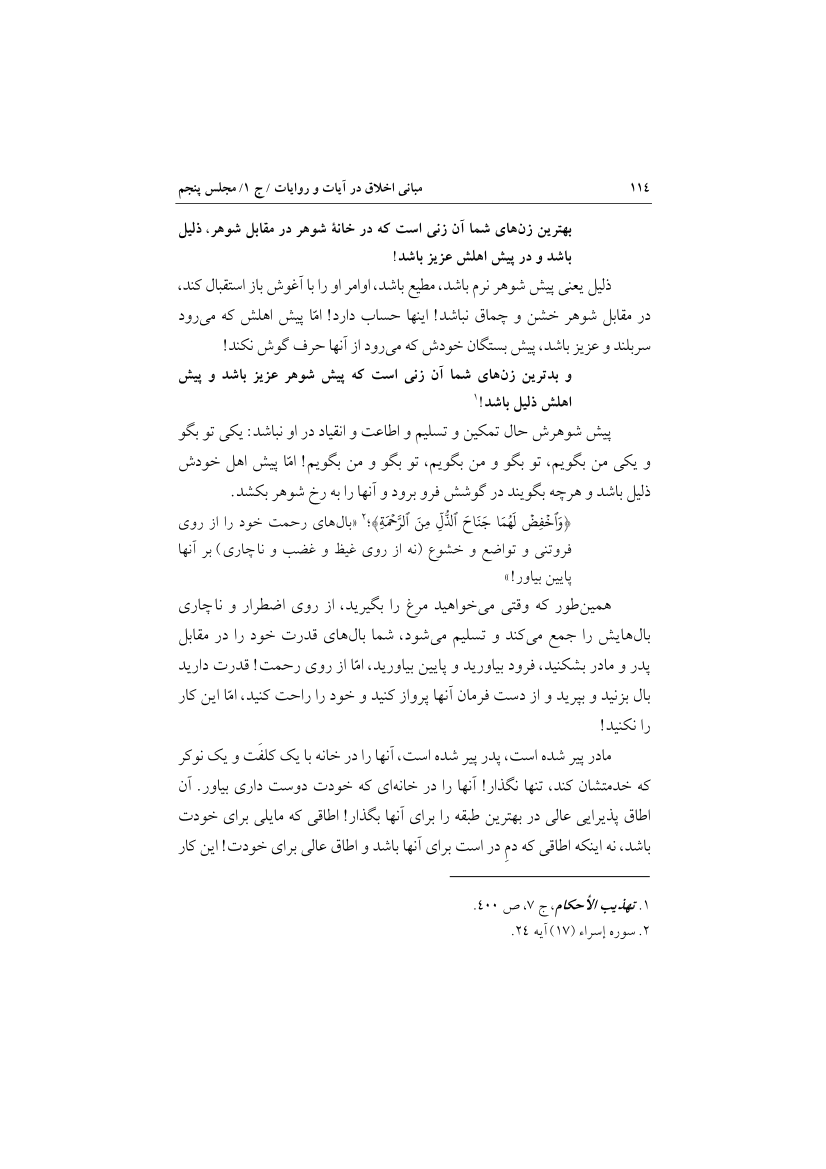 ١١٤ مبانی اخلاق در آیات و روایات / ج ١/ مجلس پنجم
بهترین زن‌های شما آن زنی است که در خانهٔ شوهر در مقابل شوهر، ذلیل
باشد و در پیش اهلش عزیز باشد!
ذلیل یعنی پیش شوهر نرم باشد، مطیع باشد، اوامر او را با آغوش باز استقبال کند،
در مقابل شوهر خشن و چماق نباشد! اینها حساب دارد! امّا پیش اهلش که می‌رود
سربلند و عزیز باشد، پیش بستگان خودش که می‌رود از آنها حرف گوش نکند!
و بدترین زن‌های شما آن زنی است که پیش شوهر عزیز باشد و پیش
اهلش ذلیل باشد!١
پیش شوهرش حال تمکین و تسلیم و اطاعت و انقیاد در او نباشد: یکی تو بگو
و یکی من بگویم، تو بگو و من بگویم، تو بگو و من بگویم! امّا پیش اهل خودش
ذلیل باشد و هرچه بگویند در گوشش فرو برود و آنها را به رخ شوهر بکشد.
﴿وَٱخۡفِضۡ لَهُمَا جَنَاحَ ٱلذُّلِّ مِنَ ٱلرَّحۡمَةِ﴾؛٢ «بال‌های رحمت خود را از روی
فروتنی و تواضع و خشوع (نه از روی غیظ و غضب و ناچاری) بر آنها
پایین بیاور!»
همین‌طور که وقتی می‌خواهید مرغ را بگیرید، از روی اضطرار و ناچاری
بال‌هایش را جمع می‌کند و تسلیم می‌شود، شما بال‌های قدرت خود را در مقابل
پدر و مادر بشکنید، فرود بیاورید و پایین بیاورید، امّا از روی رحمت! قدرت دارید
بال بزنید و بپرید و از دست فرمان آنها پرواز کنید و خود را راحت کنید، امّا این کار
را نکنید!
مادر پیر شده است، پدر پیر شده است، آنها را در خانه با یک کلفَت و یک نوکر
که خدمتشان کند، تنها نگذار! آنها را در خانه‌ای که خودت دوست داری بیاور. آن
اطاق پذیرایی عالی در بهترین طبقه را برای آنها بگذار! اطاقی که مایلی برای خودت
باشد، نه اینکه اطاقی که دمِ در است برای آنها باشد و اطاق عالی برای خودت! این کار
١. تهذیب الأحکام، ج ٧، ص ٤٠٠.
٢. سوره إسراء (١٧) آیه ٢٤.